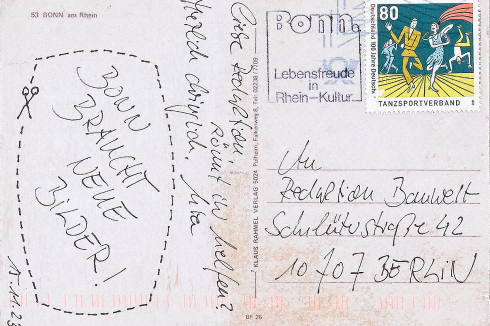 53 BONN am Rhein
BONN
BRAUCHT
NEUE
BILDER!
11.11.23
Liebe Redaktion,
könnt ihr helfen?
Herzlich
KLAUS RAHMEL VERLAG 5024 Pulheim, Falkenweg 8, Tel: 02238/7109
BF 26
Bonn.
Lebensfreude
in
Rhein-Kultur.
80
Deutschland
100 Jahre Deutscher
TANZSPORTVERBAND
An
Redaktion Bauwelt
Schlüterstraße 42
10707 BERLIN